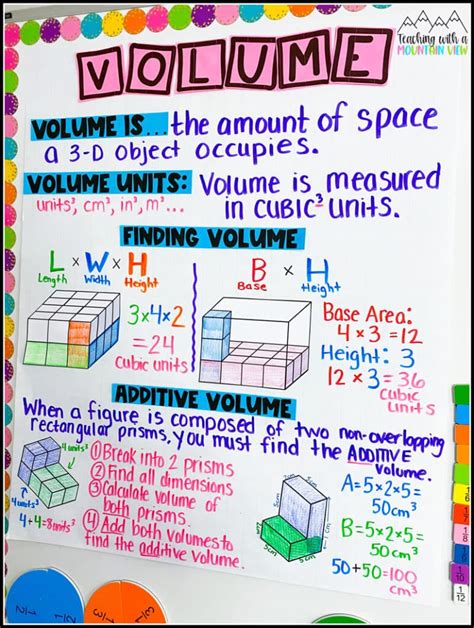 Teaching with a
MOUNTAIN VIEW
VOLUME
VOLUME IS... the amount of space
a 3-D object occupies.
VOLUME UNITS: Volume is measured
units³, cm³, in³, m³... in CUBIC³ units.
FINDING VOLUME
L x W x H
Length Width Height
3x4x2
=24
cubic units
B x H
Base Height
Base Area:
4 x 3 = 12
Height: 3
12 x 3 = 36
cubic
units
ADDITIVE VOLUME
When a figure is composed of two non-overlapping
rectangular prisms, you must find the ADDITIVE
volume.
4 units³
4 units³
4+4=8 units³
① Break into 2 prisms
② Find all dimensions
③ Calculate volume of
both prisms.
④ Add both volumes to
find the additive volume.
5cm
5cm
5cm
A=5x2x5=
50cm³
B=5x2x5=
50cm³
50+50=100
cm³